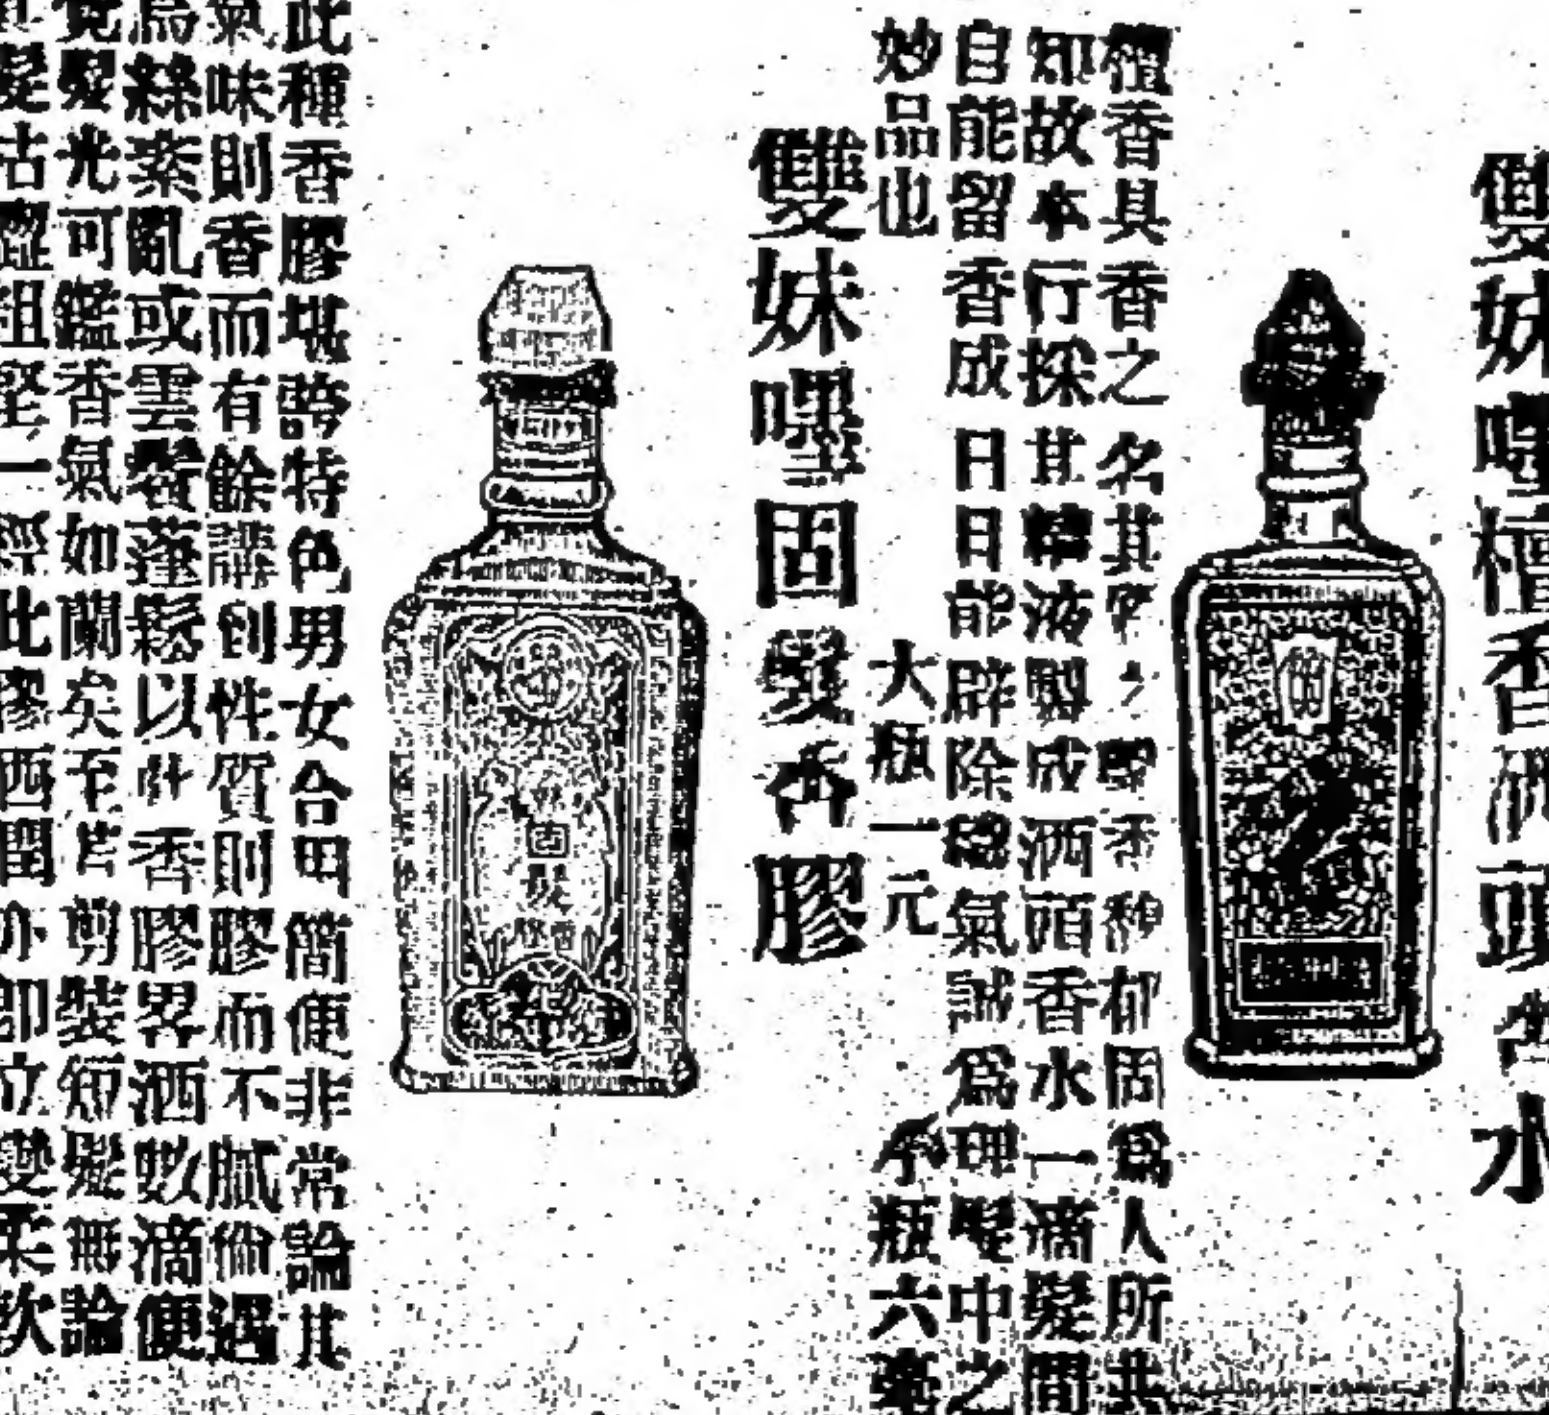 雙妹嘜檀香洒頭香水
檀香具香之名其香之馨香和郁固爲人所共
知故本行採其精液製成洒頭香水一滴髮間
自能留香成日日能辟除穩氣誠爲理髮中之
妙品也
大瓶一元
小瓶六毫
雙妹嘜固髮香膠
此種香膠堪誇特色男女合用簡便非常論其
氣味則香而有餘講到性質則膠而不膩倘遇
烏絲紊亂或雲鬢蓬鬆以此香膠畧洒數滴便
覺髮光可鑑香氣如蘭矣至若剪裝短髮無論
髮枯澀粗堅一經此膠西潤亦即立變柔軟
固髮